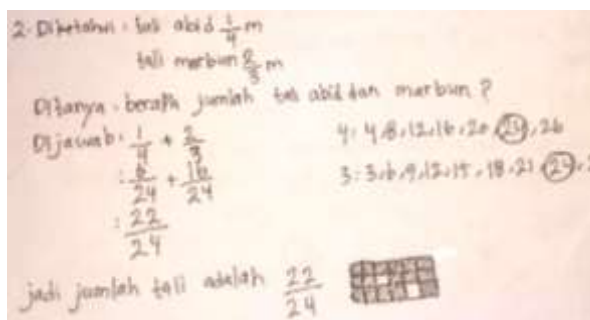 2. Diketahui : tali abid 1/4 m
tali marbun 2/3 m
Ditanya : berapa jumlah tali abid dan marbun ?
Dijawab : 1/4 + 2/3
4 : 4, 8, 12, 16, 20, 24, 26
: 6/24 + 16/24
3 : 3, 6, 9, 12, 15, 18, 21, 24,
: 22/24
jadi jumlah tali adalah 22/24